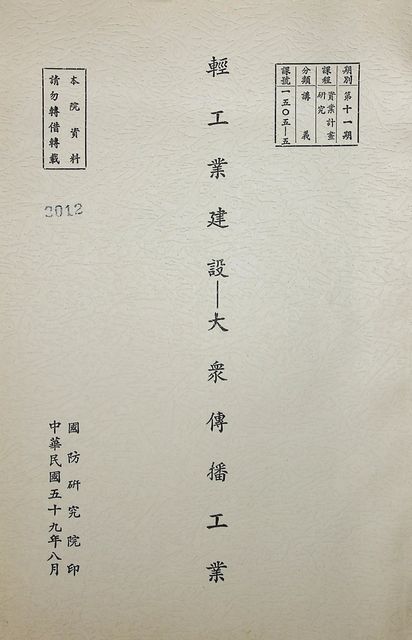 期別 第十一期
課程 資業計畫
研究
分類 講義
課號 一五〇五—五
輕工業建設—大眾傳播工業
本院資料
請勿轉借轉載
2012
國防研究院印
中華民國五十九年八月